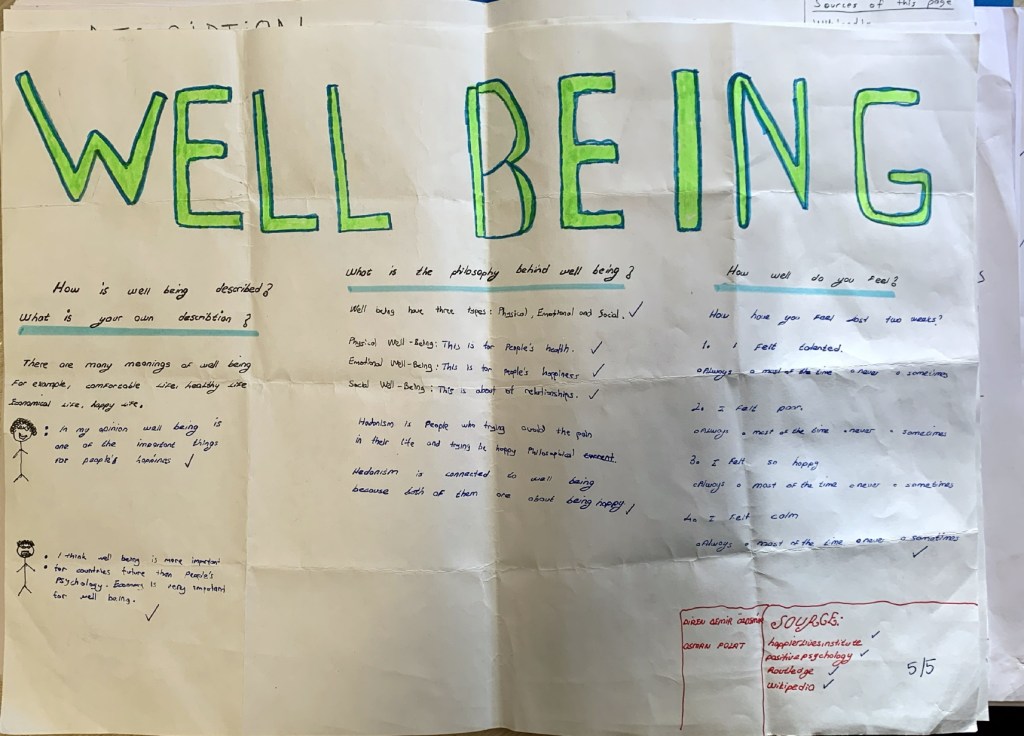 Sources of this page
WELL BEING
How is well being described?
What is your own description?
There are many meanings of well being
For example, comfortable life, healthy life
Economical life, happy life.
: In my opinion well being is
one of the important things
for people's happiness ✓
: I think well being is more important
for countries future then People's
PSychology. Economy is very important
for well being. ✓
What is the philosophy behind well being?
Well being have three types: Physical, Emotional and Social. ✓
Physical Well-Being: This is for People's health. ✓
Emotional Well-Being: This is for People's happiness ✓
Social Well-Being: This is about of relationships. ✓
Hedonism is People who trying avoid the pain
in their life and trying be happy Philosophical
Hedonism is connected to well being
because both of them are about being happy ✓
How well do you feel?
How have you feel last two weeks?
1. I felt talented.
oAlways o most of the time o never o sometimes
2. I felt
oAlways o most of the time o never o sometimes
3. I felt so happy
oAlways o most of the time o never o sometimes
4. I felt calm
oAlways o most of the time o never o sometimes ✓
OSMAN POLAT
SOURCE:
happierlivesinstitute ✓
positivepsychology ✓
Routledge ✓
Wikipedia ✓
5/5